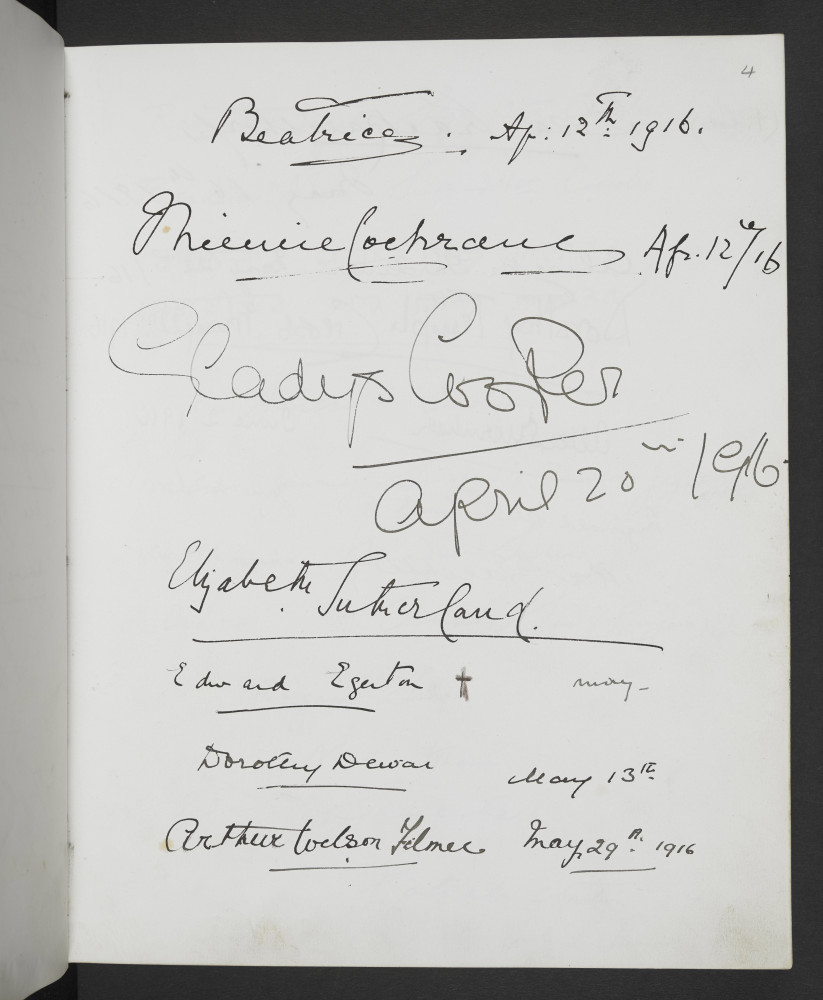 4
Beatrice. Ap: 12th 1916.
Minnie Cochrane Apr. 12th/16
Gladys Cooper
April 20th 1916
Elizabeth Sutherland.
Edward Egerton † may-
Dorothy Dewar May 13th
Arthur Wilson Filmer May 29th 1916